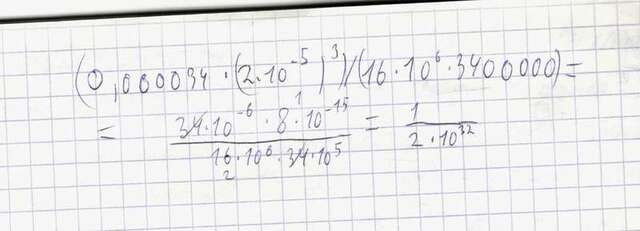 (0,000034·(2·10⁻⁵)³)/(16·10⁶·3400000)=
= (34·10⁻⁶·8·10⁻¹⁵)/(16·10⁶·34·10⁵) = 1/(2·10³²)
1
2